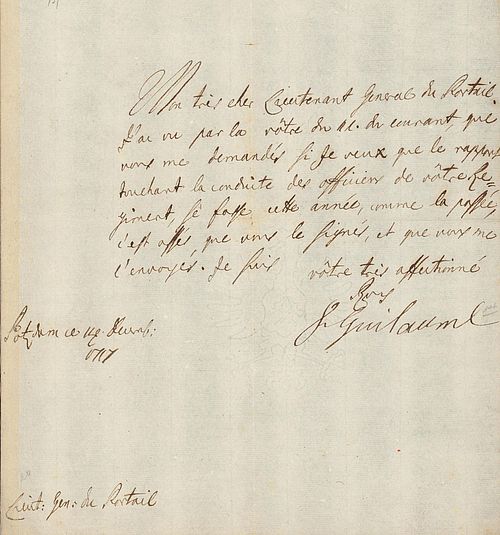 Mon tres cher Lieutenant General du Portail.
J'ai vu par la vôtre du 11. du courant, que
vous me demandés si Je veux que le rapport
touchant la conduite des officiers de vôtre Re=
giment, se fasse cette année, comme la passée,
c'est assés que vous le signes, et que vous me
l'envoyés. Je suis vôtre tres affectionné
Roy
Fr Guillaume
Potzdam ce 14e Decemb:
1717
Lieut: Gen: du Portail